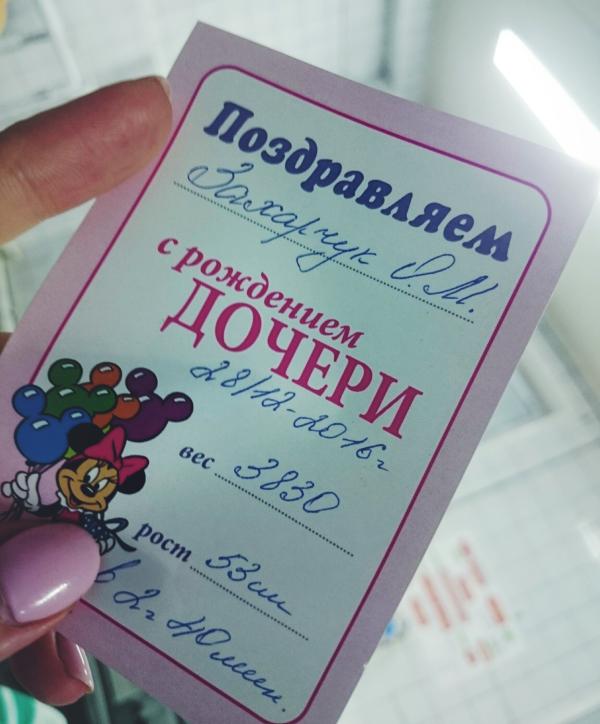 Поздравляем
Захарчук О.М.
с рождением
ДОЧЕРИ
28/12-2016г
вес 3830
рост 53см
в 2ч 40мин.